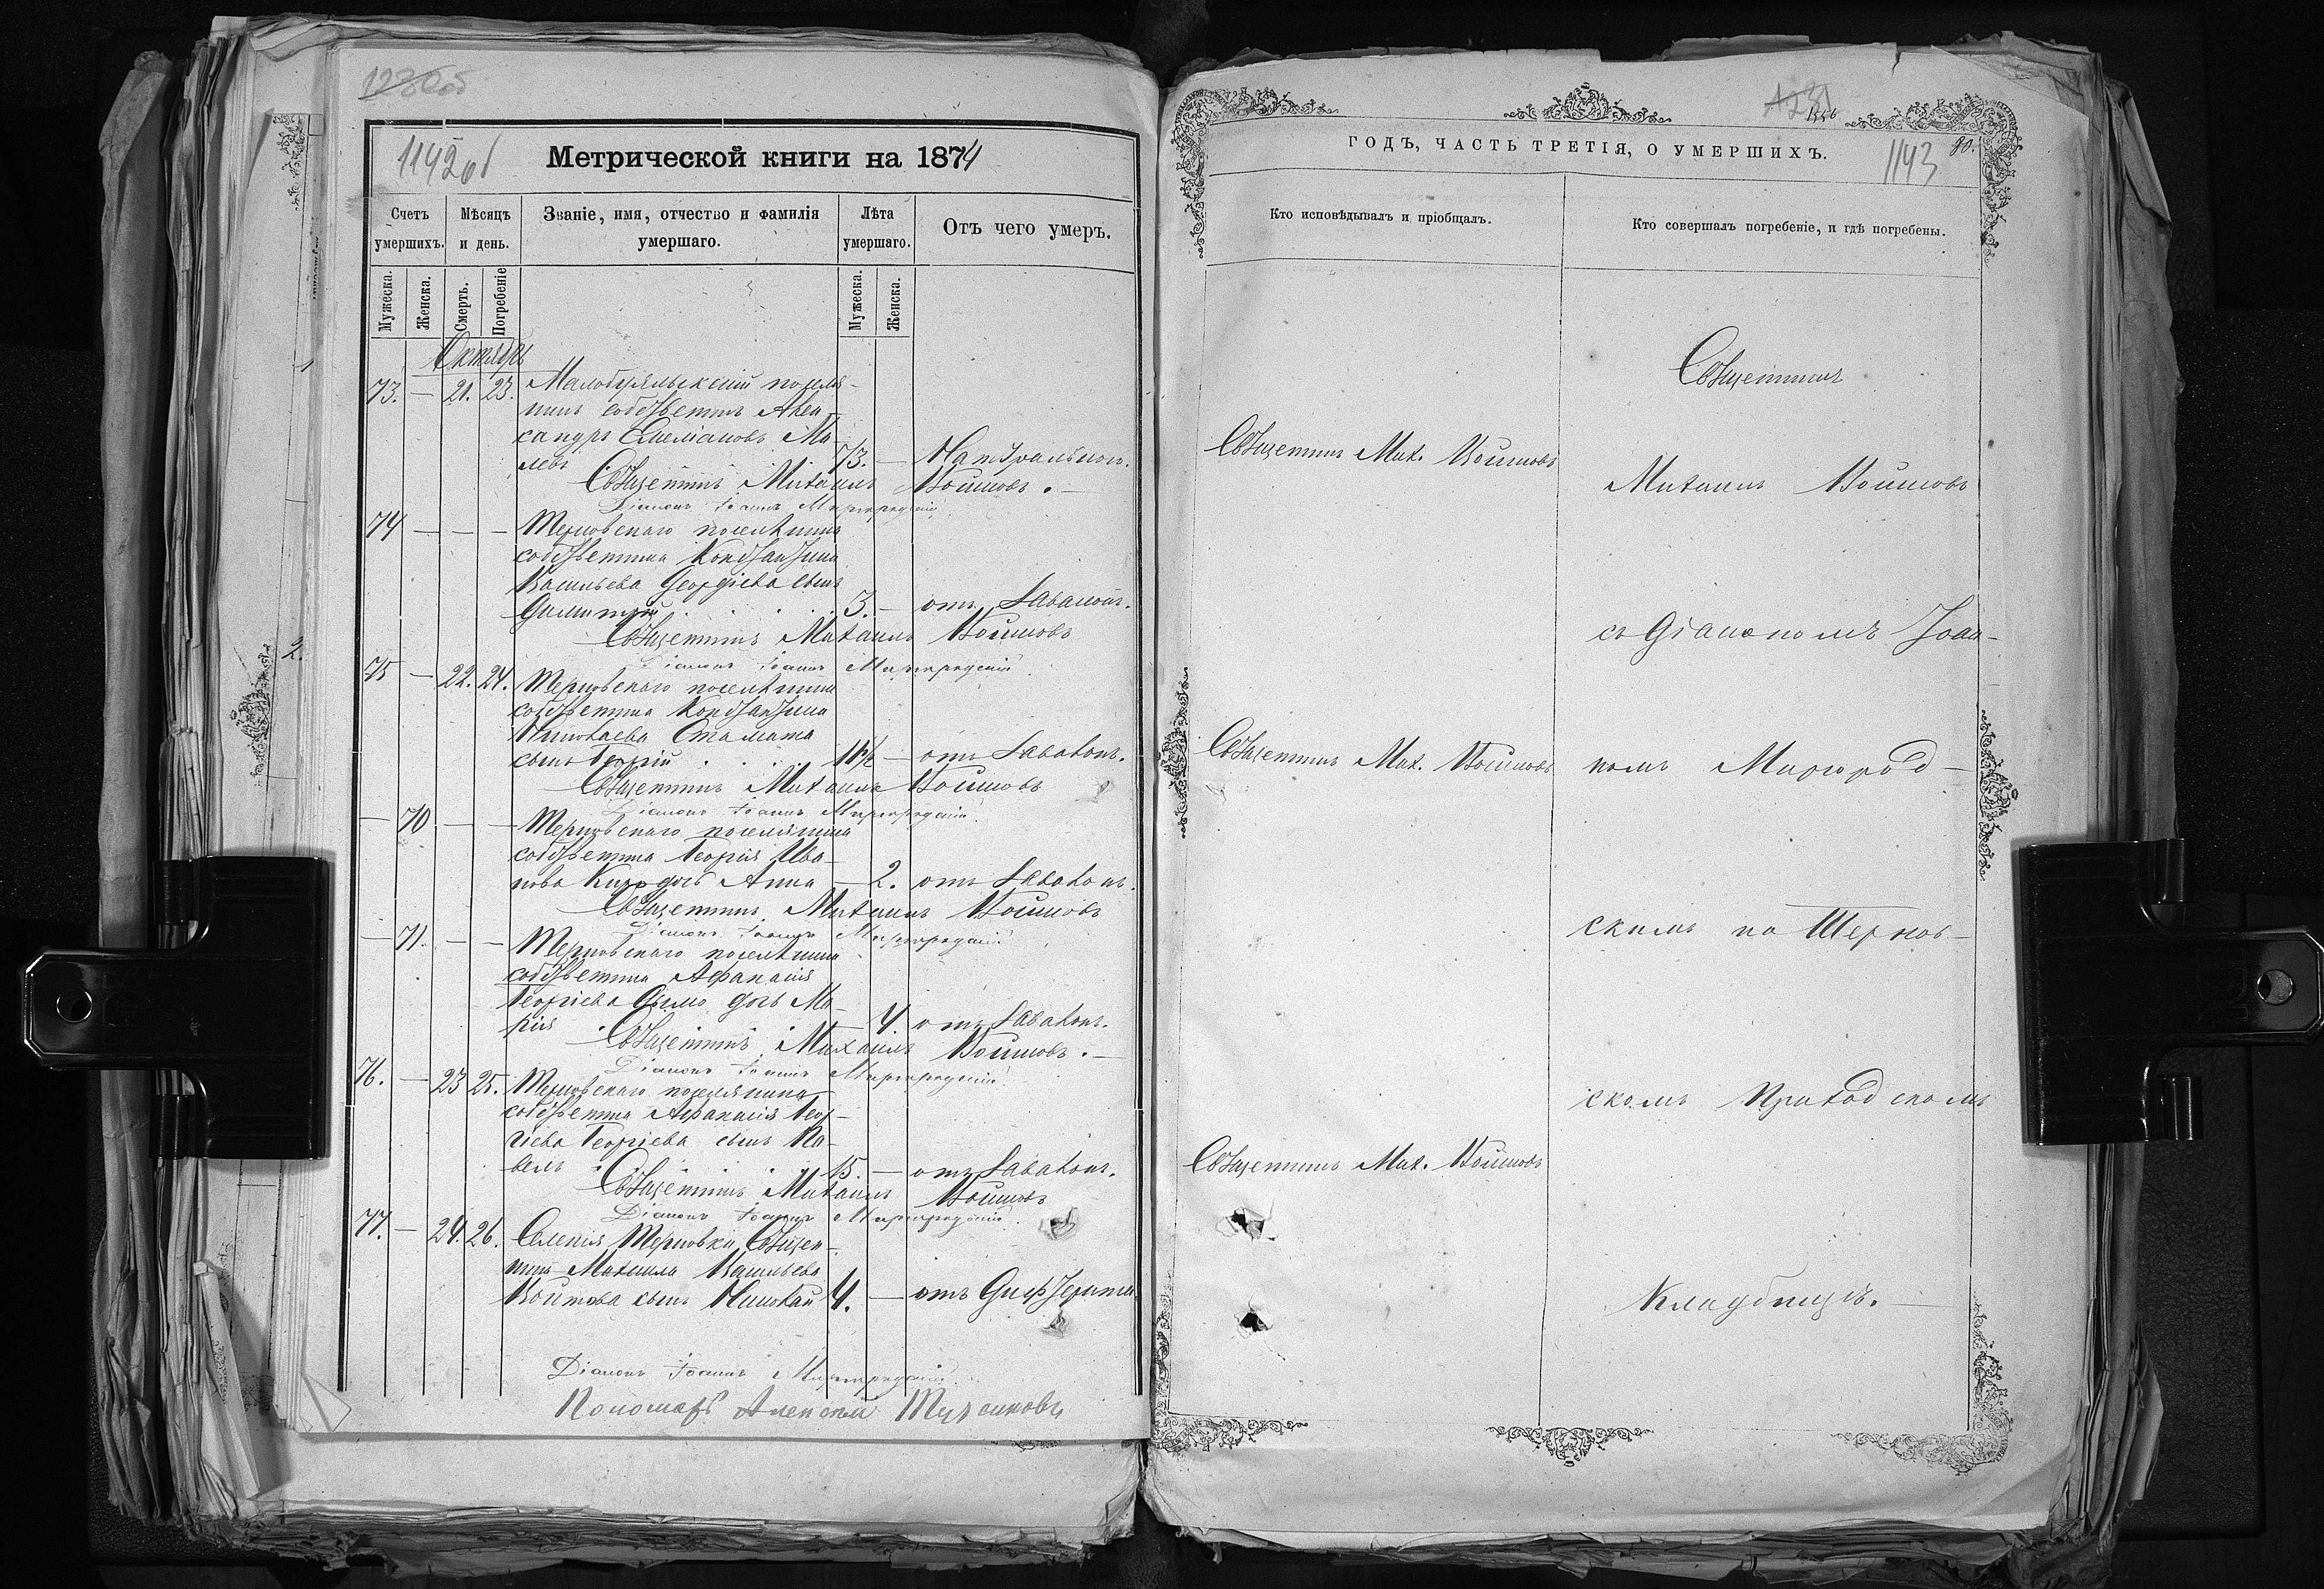 1142об
Метрической книги на 1874
Счетъ умершихъ.
Мѣсяцъ и день.
Званіе, имя, отчество и фамилія умершаго.
Лѣта умершаго.
Отъ чего умеръ.
Мужеска.
Женска.
Смерть.
Погребеніе
Мужеска.
Женска.
Октябрь
73. — 21. 23.
нинъ собственникъ Алек
сандръ Емеліановъ Ма
левъ 73. — Натуральною.
Священникъ Михаилъ Войновъ. —
Діаконъ Іоаннъ Миргородскій
74 — — — Терновскаго поселянина
собственника Константина
Васильева Георгіева сынъ
Димитрій . . . . 3. — отъ
Священникъ Михаилъ Войновъ
Діаконъ Іоаннъ Миргородскій
75 — 22. 24. Терновскаго поселянина
собственника Константина
Николаева Стамата
сынъ Георгій . . . . — отъ
Священникъ Михаилъ Войновъ
Діаконъ Іоаннъ Миргородскій
— 70 — — Терновскаго поселянина
собственника Георгія Ива
нова дочь Анна — 2. отъ
Священникъ Михаилъ Войновъ
Діаконъ Іоаннъ Миргородскій
— 71. — — Терновскаго поселянина
собственника Афанасія
Георгіева дочь Ма
рія — 4. отъ
Священникъ Михаилъ Войновъ. —
Діаконъ Іоаннъ Миргородскій
76. — 23 25. Терновскаго поселянина
собственника Афанасія Геор
гіева Георгіева сынъ Па
велъ . . . . 15. — отъ
Священникъ Михаилъ Войновъ
Діаконъ Іоаннъ Миргородскій
77. — 24. 26. Селенія Терновки Священ
ника Михаила Васильева
Войнова сынъ Николай 4. — отъ Дифтерита
Діаконъ Іоаннъ Миргородскій
Пономарь Алексей
1143
80.
ГОДЪ, ЧАСТЬ ТРЕТІЯ, О УМЕРШИХЪ.
Кто исповѣдывалъ и пріобщалъ.
Кто совершалъ погребеніе, и гдѣ погребены.
Священникъ
Священникъ Мих. Войновъ
Михаилъ Войновъ
съ Діакономъ Іоан
Священникъ Мих. Войновъ
номъ Миргород
скимъ на Тернов
скомъ Приходскомъ
Священникъ Мих. Войновъ
Кладбищѣ. —